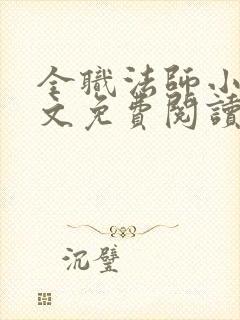 全職法師小
文免費閱讀
沉璧